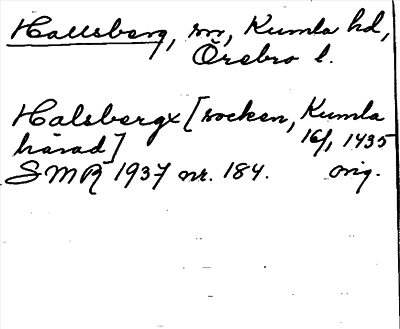 Hallsberg, sn, Kumla hd,
Örebro l.
Halsbergx [socken, Kumla
härad] 16/1 1435
SMR 1937 nr. 184. orig.